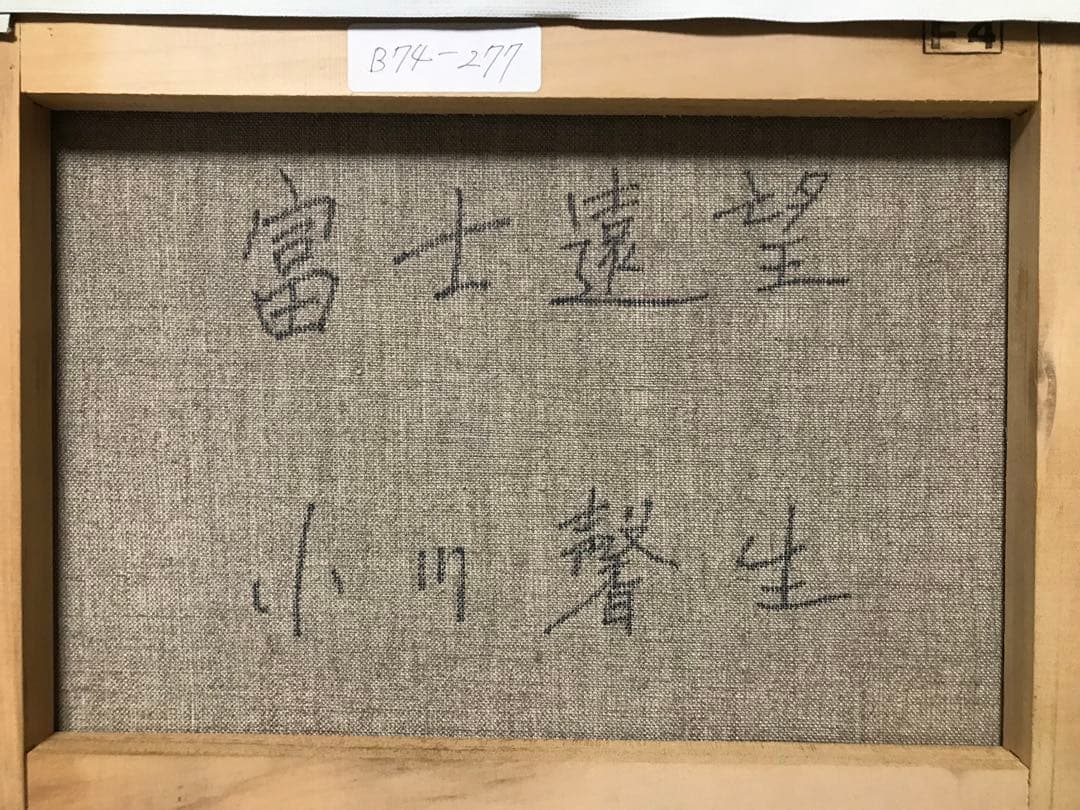 B74-277
F4
富士遠望
小川馨生